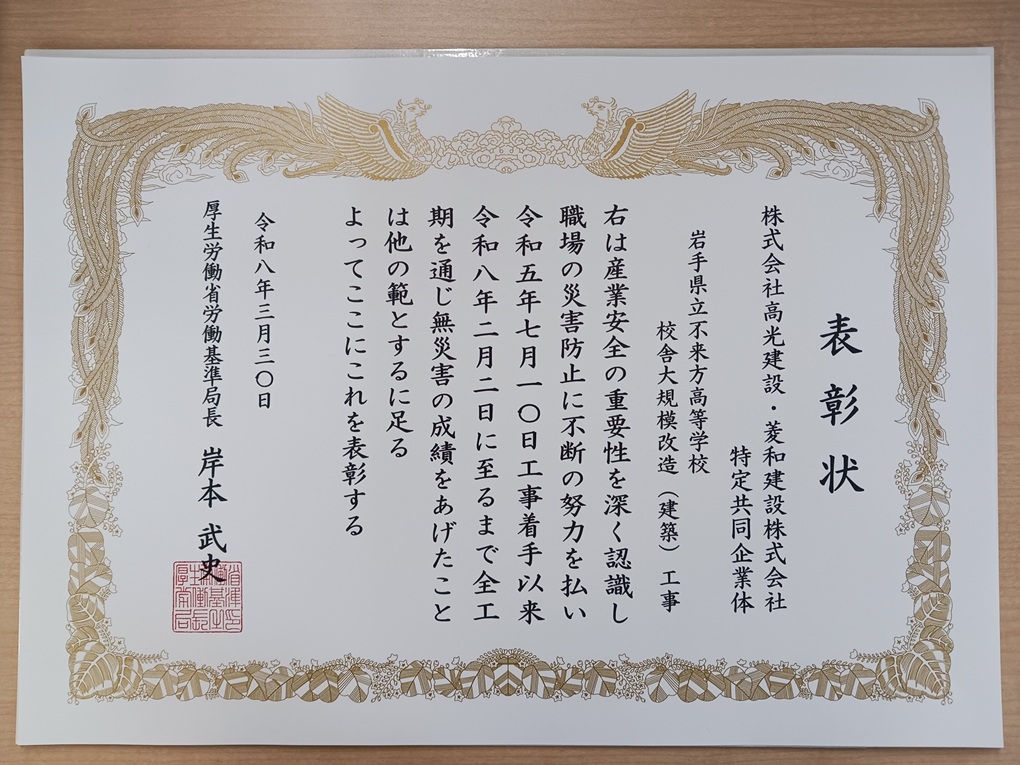 表彰状
株式会社高光建設・菱和建設株式会社
特定共同企業体
岩手県立不来方高等学校
校舎大規模改造（建築）工事
右は産業安全の重要性を深く認識し
職場の災害防止に不断の努力を払い
令和五年七月一〇日工事着手以来
令和八年二月二日に至るまで全工
期を通じ無災害の成績をあげたこと
は他の範とするに足る
よってここにこれを表彰する
令和八年三月三〇日
厚生労働省労働基準局長 岸本 武史